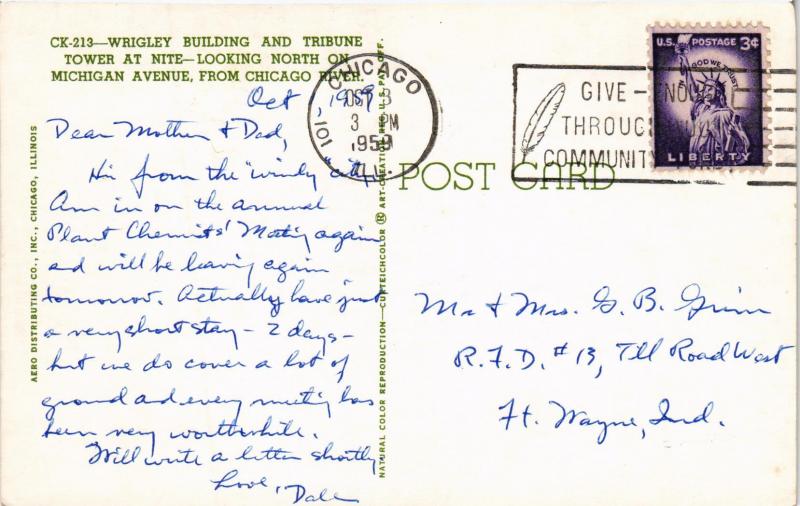 CK-213—WRIGLEY BUILDING AND TRIBUNE
TOWER AT NITE—LOOKING NORTH ON
MICHIGAN AVENUE, FROM CHICAGO RIVER.
Oct , 1959
Dear Mother & Dad,
Hi from the "windy" city.
Am in on the annual
Plant Chemists' Meeting again
and will be leaving again
tomorrow. Actually have just
a very short stay – 2 days –
but we do cover a lot of
ground and every meeting has
been very worthwhile.
Will write a letter shortly.
Love, Dale
AERO DISTRIBUTING CO., INC., CHICAGO, ILLINOIS
NATURAL COLOR REPRODUCTION—CURTEICHCOLOR ® ART-CREATION REG. U.S. PAT. OFF.
POST CARD
CHICAGO
101
OCT
3 PM
1959
ILL.
GIVE –
THROUGH
COMMUNITY
U.S. POSTAGE 3¢
IN GOD WE TRUST
LIBERTY
Mr & Mrs. G. B. Grim
R.F.D. #13, Till Road West
Ft. Wayne, Ind.